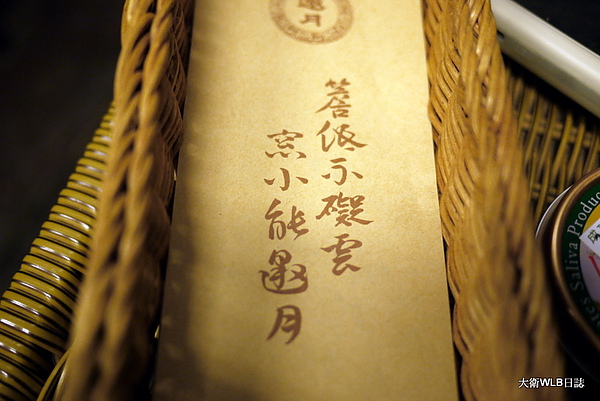 邀月
簷低不礙雲
窓小能邀月
Saliva Produc
大衛WLB日誌